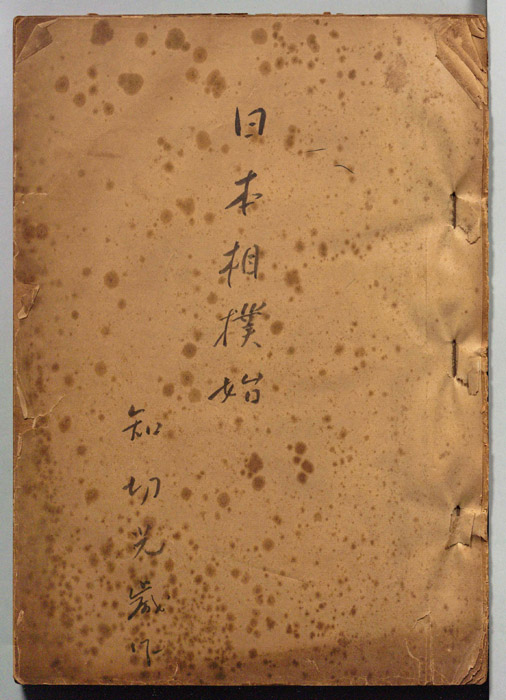 日本相撲始
知切光歳作